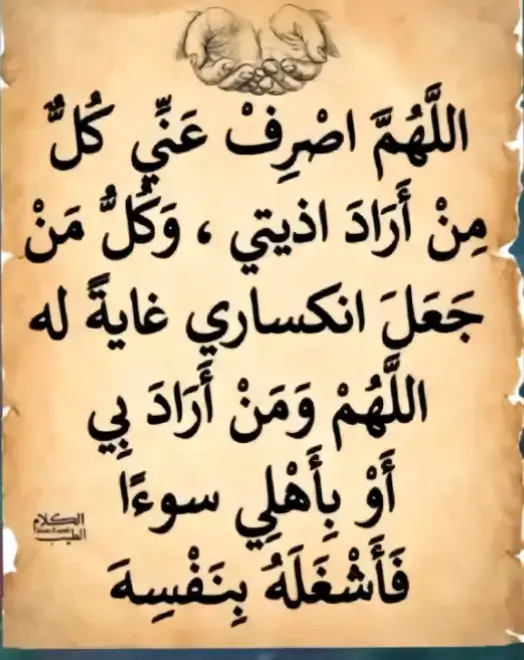 اللَّهُمَّ اصْرِفْ عَنِّي كُلُّ
مِنْ أَرَادَ اذيتي ، وَكُلُّ مَنْ
جَعَلَ انكساري غايةً له
اللَّهُمْ وَمَنْ أَرَادَ بِي
أَوْ بِأَهْلِي سوءًا
فَأَشْغَلَهُ بِنَفْسِهَ
الكلام
الطيب